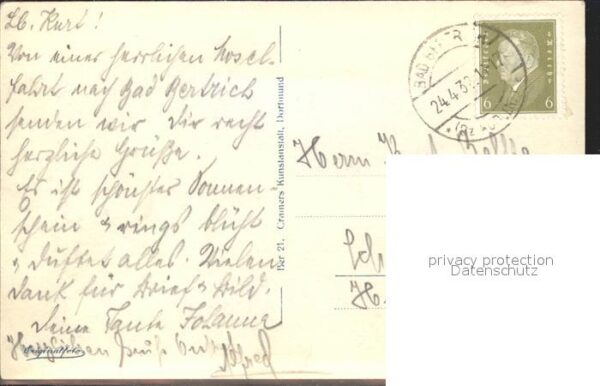 Lb. Kurt!
Von einer herrlichen Mosel-
fahrt nach Bad Bertrich
senden wir Dir recht
herzliche Grüße.
Es ist schönster Sonnen-
schein & rings blüht
& duftet alles. Vielen
Dank für Brief & Bild.
Deine Tante Johanna
Herzlichen Gruß Onkel Alfred
Originalfoto
Ber 21. Cramers Kunstanstalt, Dortmund
BAD BERTRICH
24.4.3
6 6
Herrn
privacy protection
Datenschutz